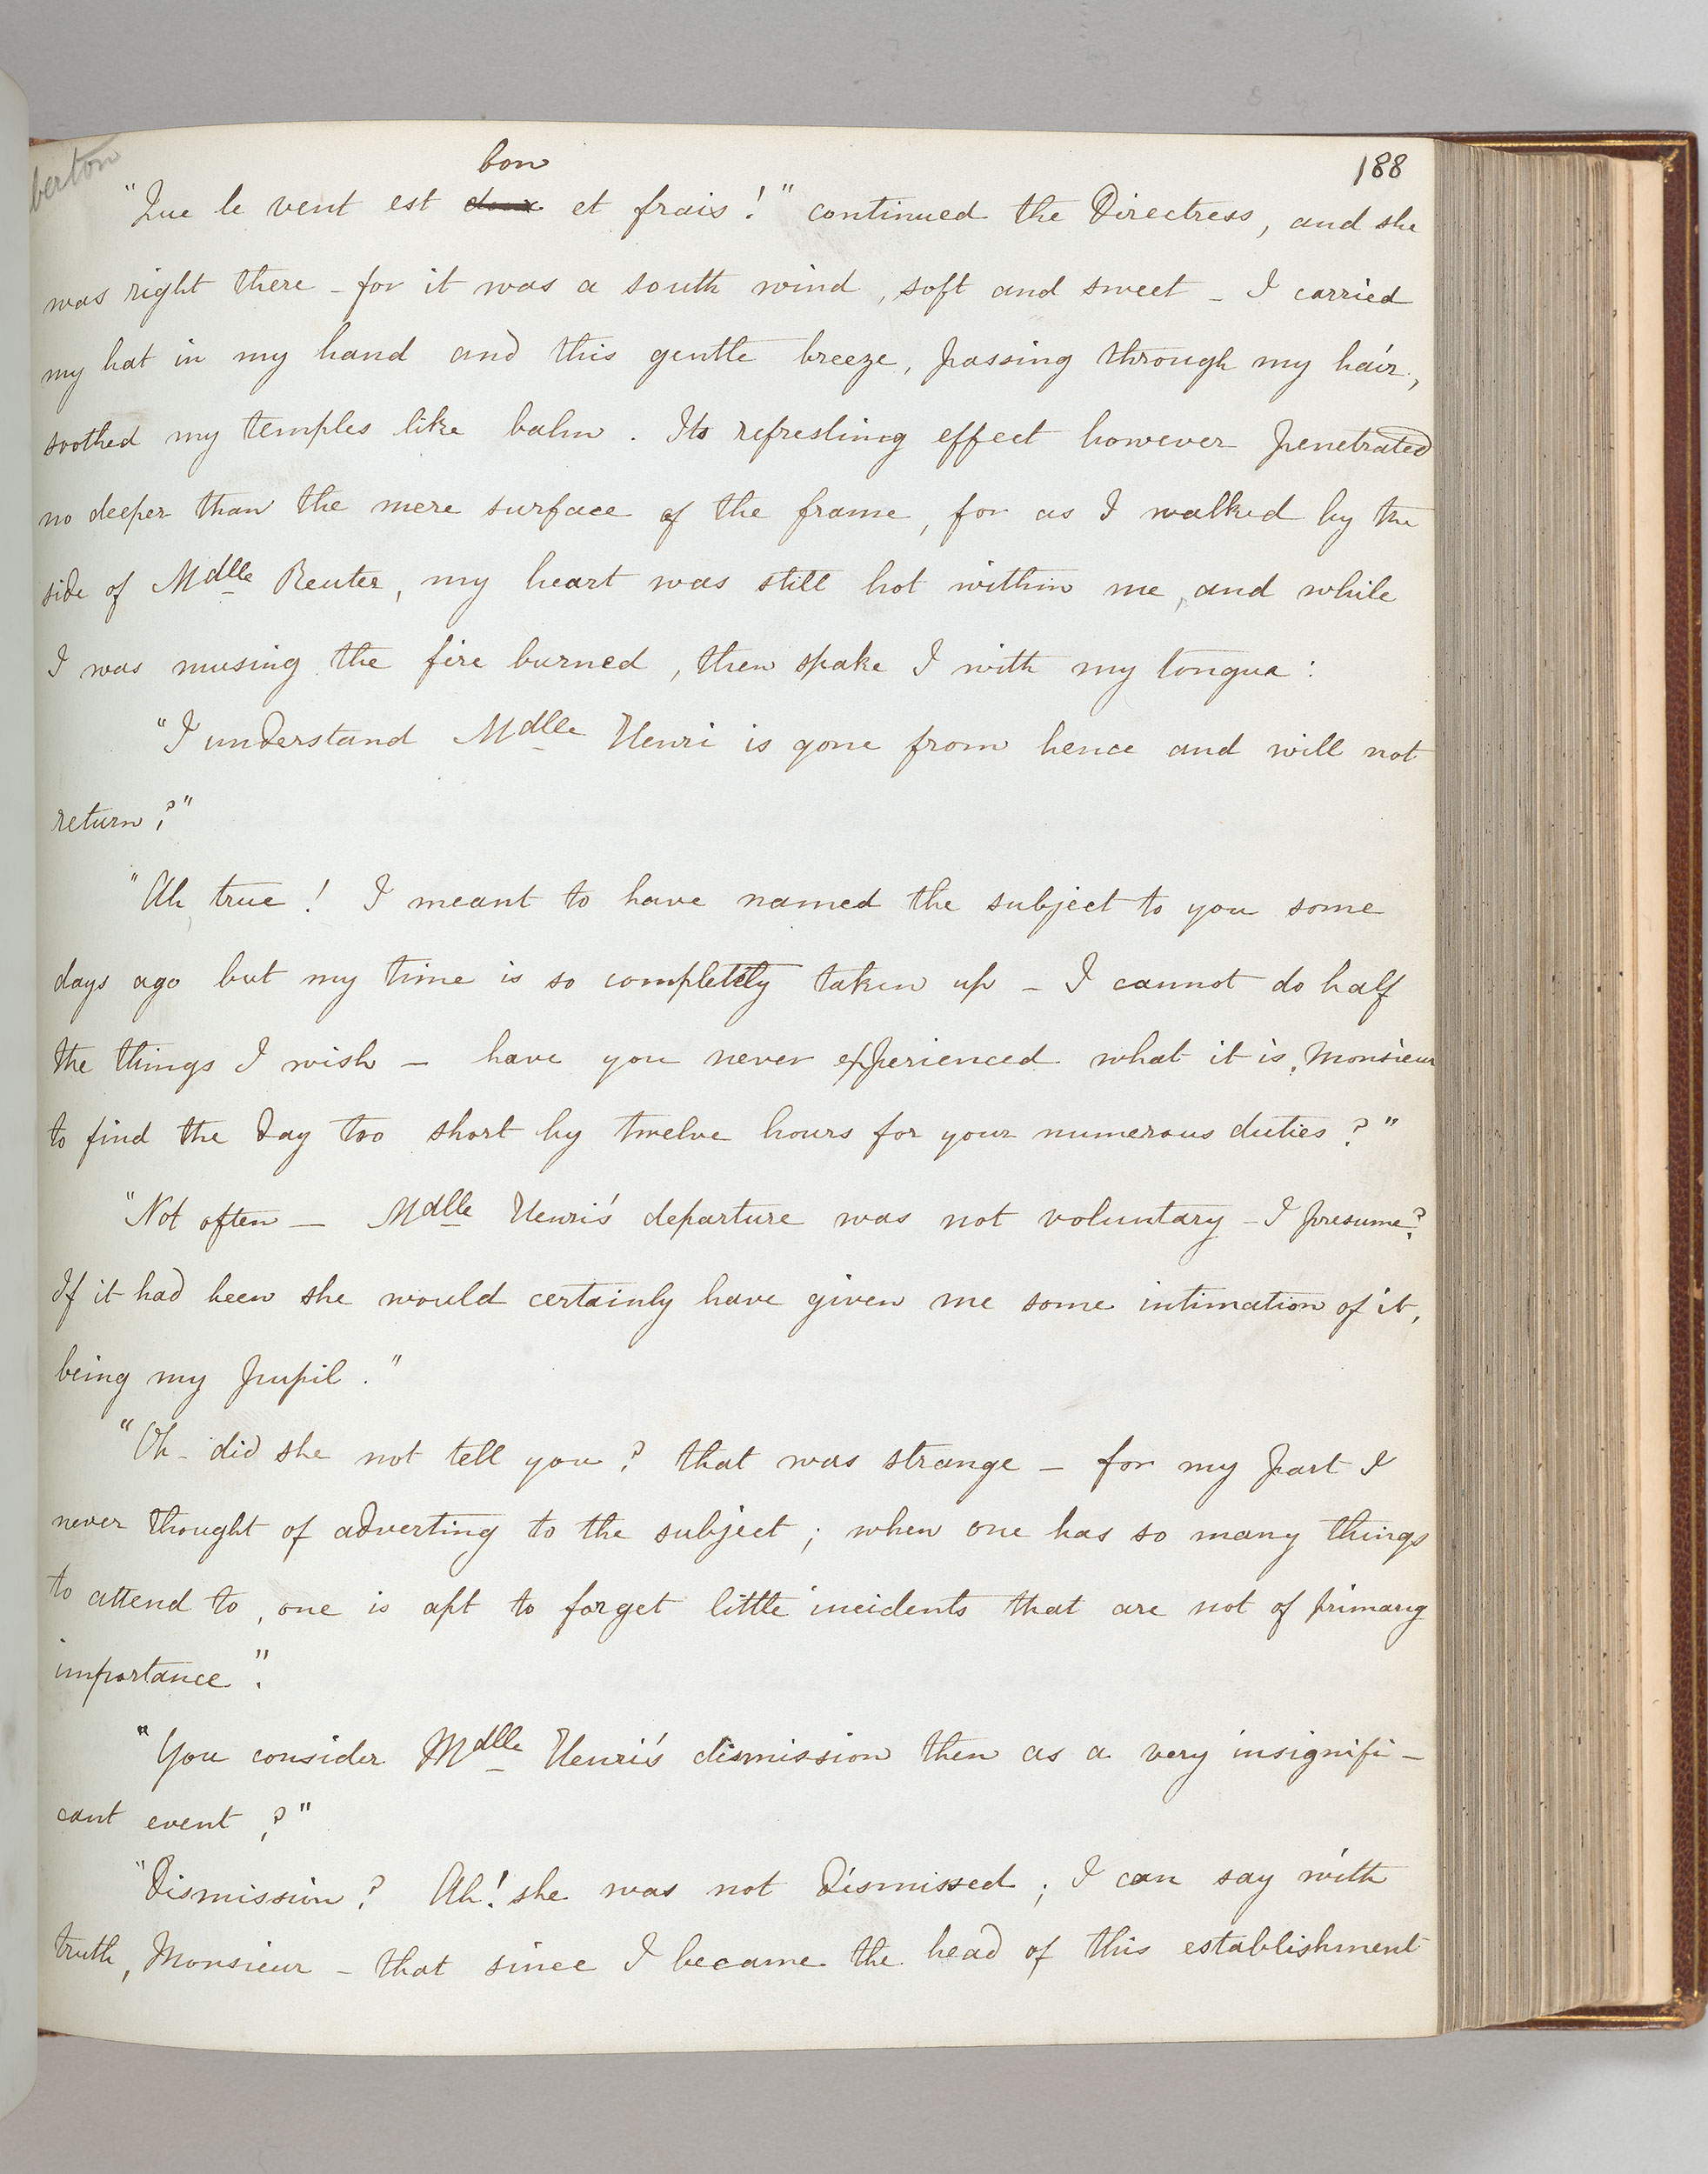 188
berton
bon
"Que le vent est doux et frais!" continued the Directress, and she
was right there - for it was a south wind, soft and sweet - I carried
my hat in my hand and this gentle breeze, passing through my hair,
soothed my temples like balm. Its refreshing effect however penetrated
no deeper than the mere surface of the frame, for as I walked by the
side of Mdlle Reuter, my heart was still hot within me, and while
I was musing the fire burned, then spake I with my tongue:
"I understand Mdlle Henri is gone from hence and will not
return?"
"Ah true! I meant to have named the subject to you some
days ago but my time is so completely taken up - I cannot do half
the things I wish - have you never experienced what it is, Monsieur
to find the day too short by twelve hours for your numerous duties?"
"Not often - Mdlle Henri's departure was not voluntary - I presume?
If it had been she would certainly have given me some intimation of it,
being my pupil."
"Oh - did she not tell you? that was strange - for my part I
never thought of adverting to the subject; when one has so many things
to attend to, one is apt to forget little incidents that are not of primary
importance."
"You consider Mdlle Henri's dismission then as a very insignifi-
cant event?"
"Dismission? Ah! she was not dismissed; I can say with
truth, Monsieur - that since I became the head of this establishment